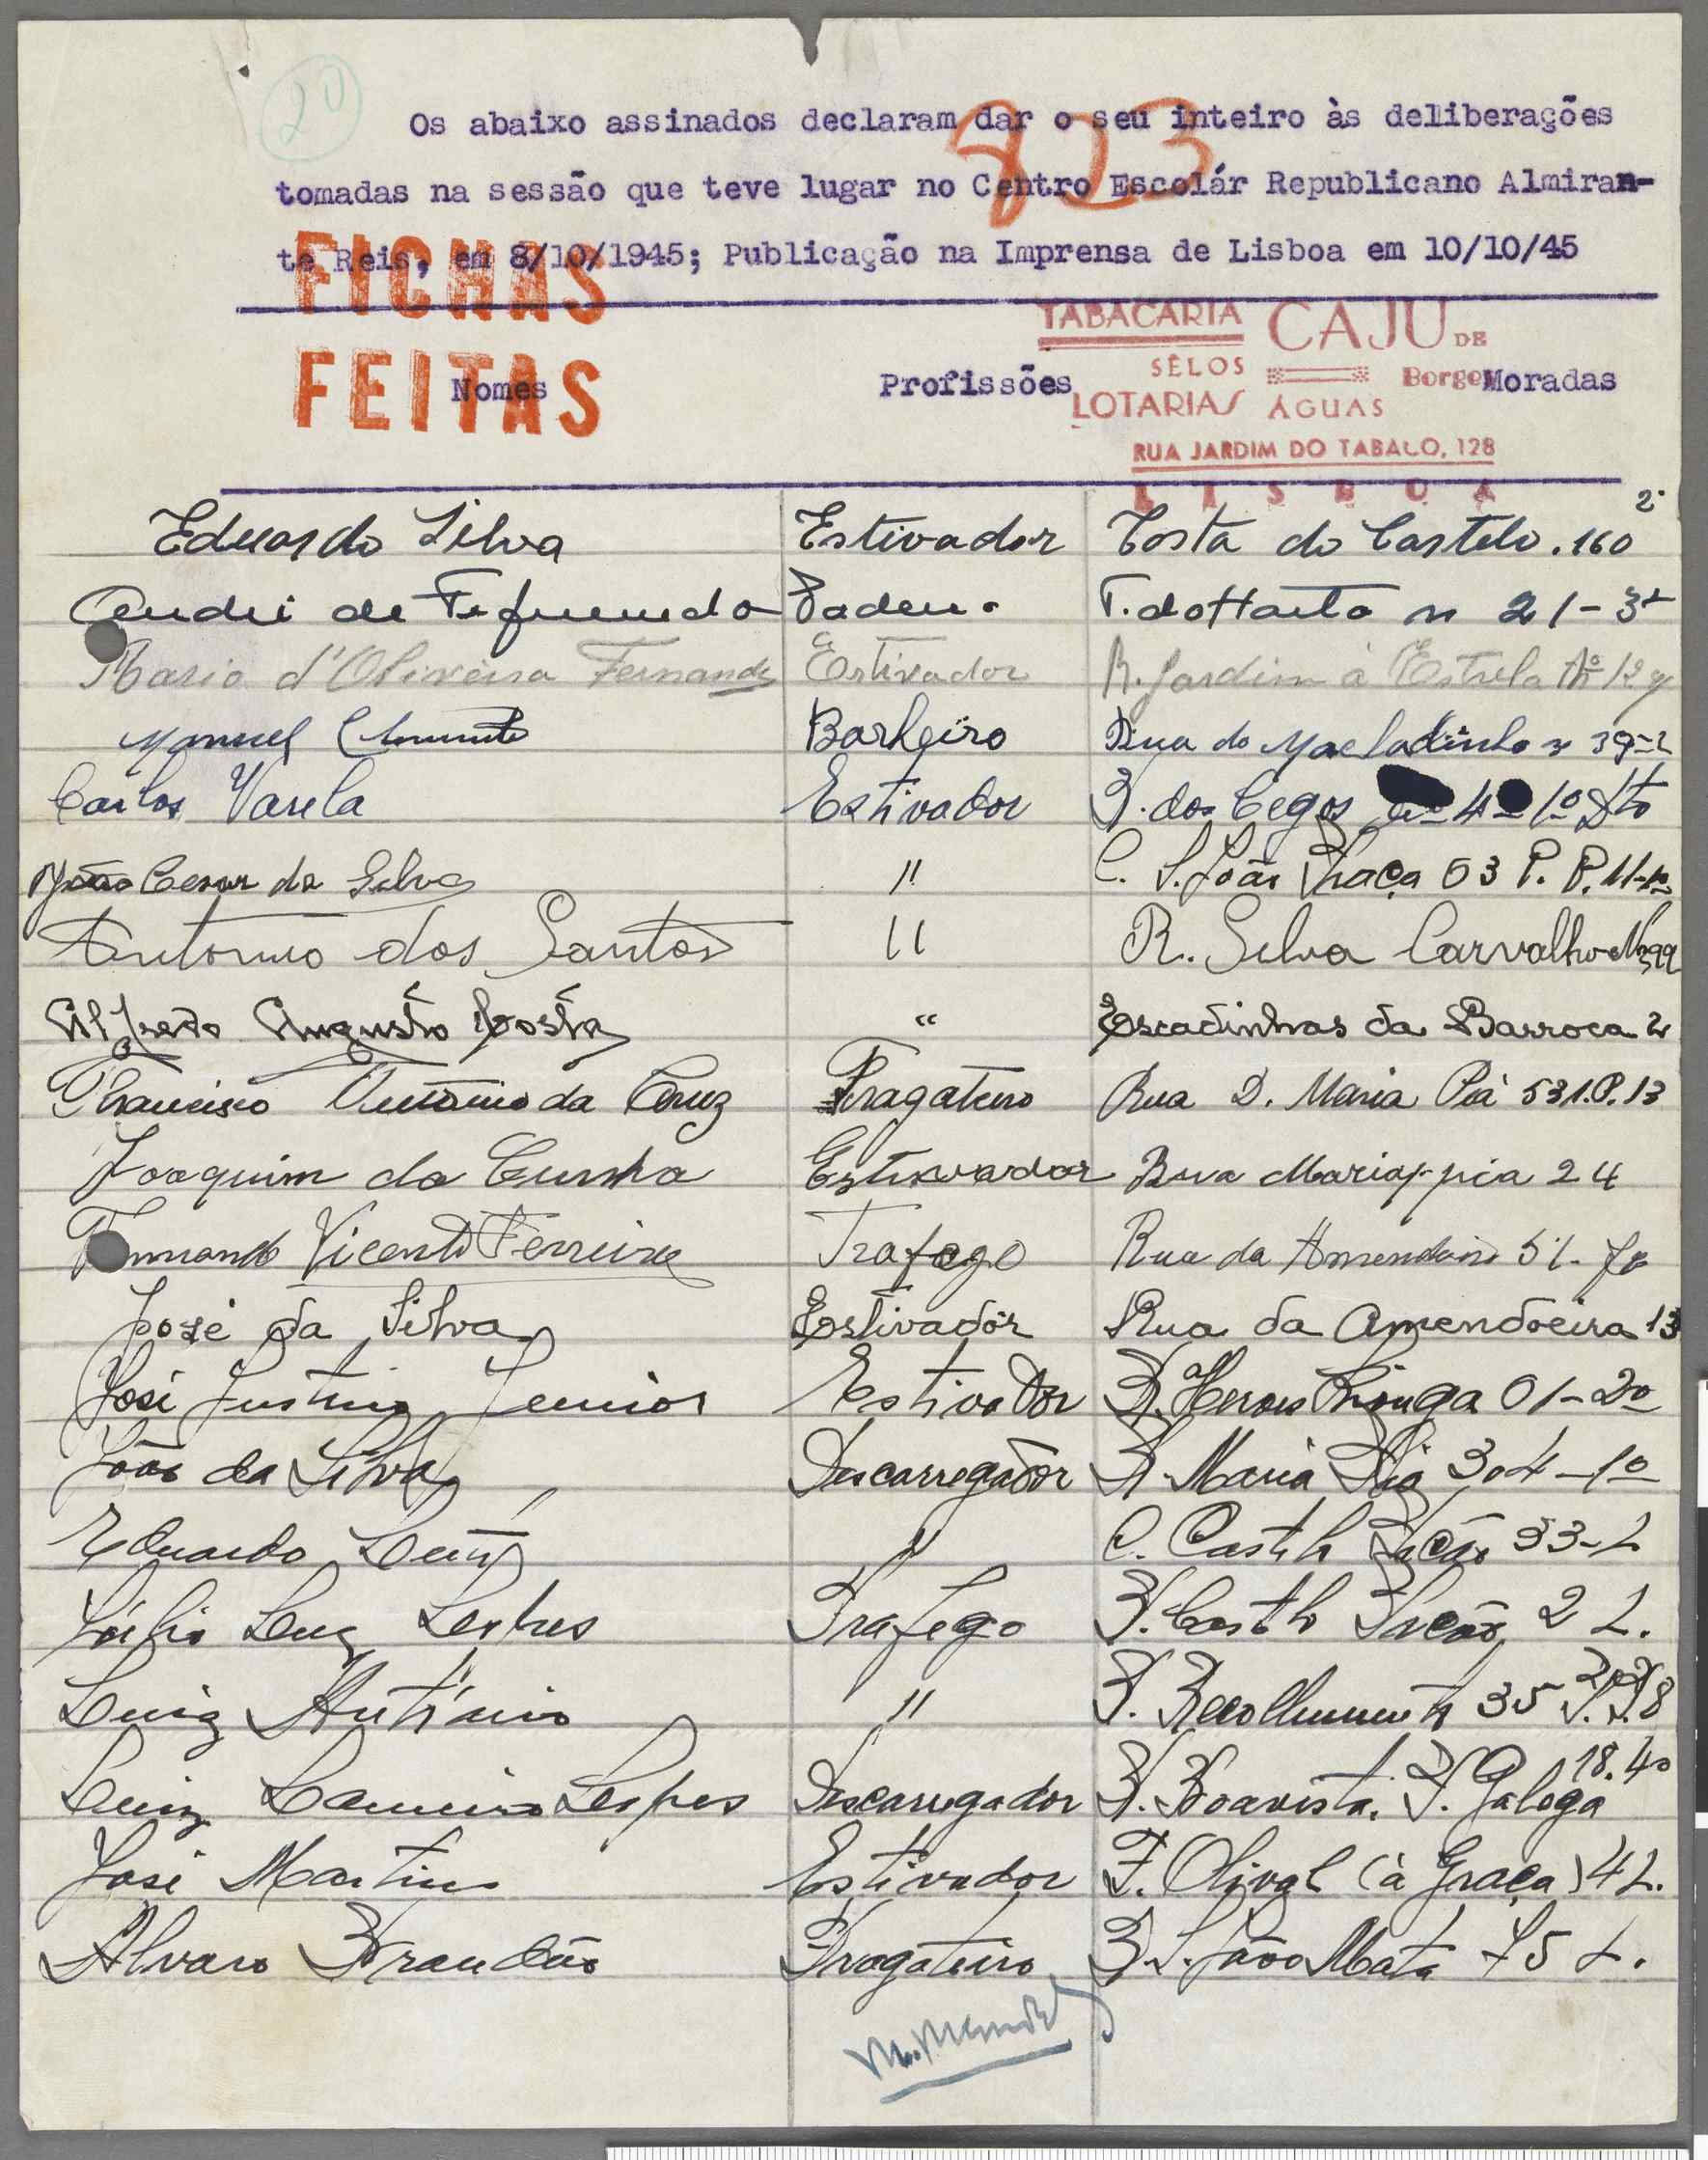 20
Os abaixo assinados declaram dar o seu inteiro às deliberações
823
tomadas na sessão que teve lugar no Centro Escolár Republicano Almiran-
te Reis, em 8/10/1945; Publicação na Imprensa de Lisboa em 10/10/45
FICHAS
FEITAS
TABACARIA CAJU DE
SÊLOS Borge
LOTARIAS ÁGUAS
RUA JARDIM DO TABACO, 128
LISBOA
Nomes Profissões Moradas
Eduardo Silva Estivador Costa do Castelo. 160 2º
de T. do n 21-3º
Mario d'Oliveira Fernandes Estivador R. Jardim à Estrela Nº 12
Manuel Clemente Barheiro Rua do Machadinho nº 39-2
Carlos Varela Estivador R. dos Cegos nº 4 1º Dto
João Cesar da Silva " C. S. João Praça 03 P. P. 11-1º
Antonio dos Santos " R. Silva Carvalho
Alfredo Augusto Costa " Escadinhas da Barroca 2
Francisco Antonio da Cruz Fragateiro Rua D. Maria Piá 531.P.13
Joaquim da Cunha Estivador Rua Maria pia 24
Fernando Vicente Ferreira Trafego Rua da 51.
José da Silva Estivador Rua da Amendoeira 13
José Justino Junior Estivador R. Herois Quionga 01-2º
João da Silva Descarregador R. Maria Pia 304-1º
Eduardo " C. Picão 33-L
Julio Luiz Lopes Trafego R. Picão 2 L.
Luiz António " R. Recolhimento 35
Luiz Lopes Descarregador R. Boavista. P. Galega 18.4º
José Martins Estivador T. Olival (à Graça) 4 L.
Alvaro Brandão Fragateiro R. S. João Mata 75 L.